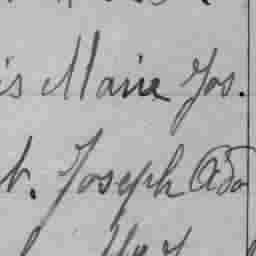 is Marie Jos.
b. Joseph Ado